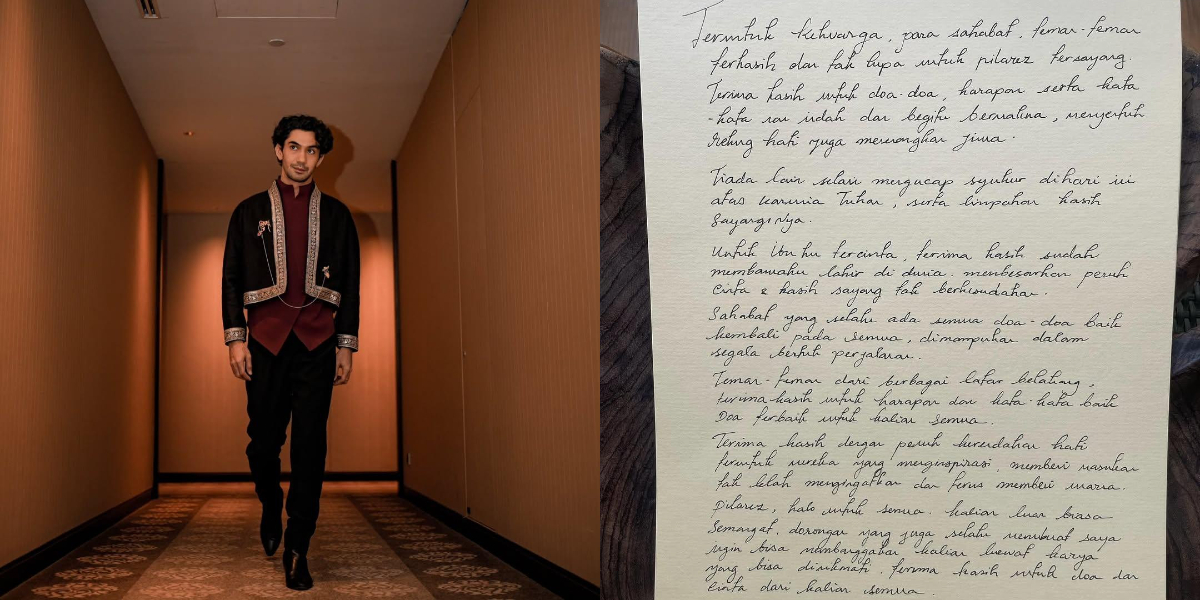 Teruntuk keluarga, para sahabat, teman-teman
terkasih dan tak lupa untuk pilarez tersayang.
Terima kasih untuk doa-doa, harapan serta kata
-kata nan indah dan begitu bermakna, menyentuh
relung hati juga menenangkan jiwa.
Tiada lain selain mengucap syukur dihari ini
atas karunia Tuhan, serta limpahan kasih
sayangNya.
Untuk Ibu ku tercinta, terima kasih sudah
membawaku lahir di dunia. membesarkan penuh
cinta & kasih sayang tak berkesudahan.
Sahabat yang selalu ada semua doa-doa baik
kembali pada semua, dimampukan dalam
segala bentuk perjalanan.
Teman-teman dari berbagai latar belakang,
terima kasih untuk harapan dan kata-kata baik
Doa terbaik untuk kalian semua.
Terima kasih dengan penuh kerendahan hati
teruntuk mereka yang menginspirasi, memberi masukan
tak lelah mengingatkan dan terus memberi warna.
Pilarez, halo untuk semua. kalian luar biasa
Semangat, dorongan yang juga selalu membuat saya
ingin bisa membanggakan kalian lewat karya
yang bisa dinikmati. terima kasih untuk doa dan
cinta dari kalian semua.